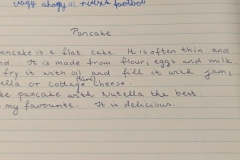 Pancake
ancake is a flat cake. It is often thin and
nd. It is made from flour, eggs and milk.
fry it with oil and fill it with jam,
ella or cottage cheese
ke pancake with Nutella the best.
my favourite. It is delicious.